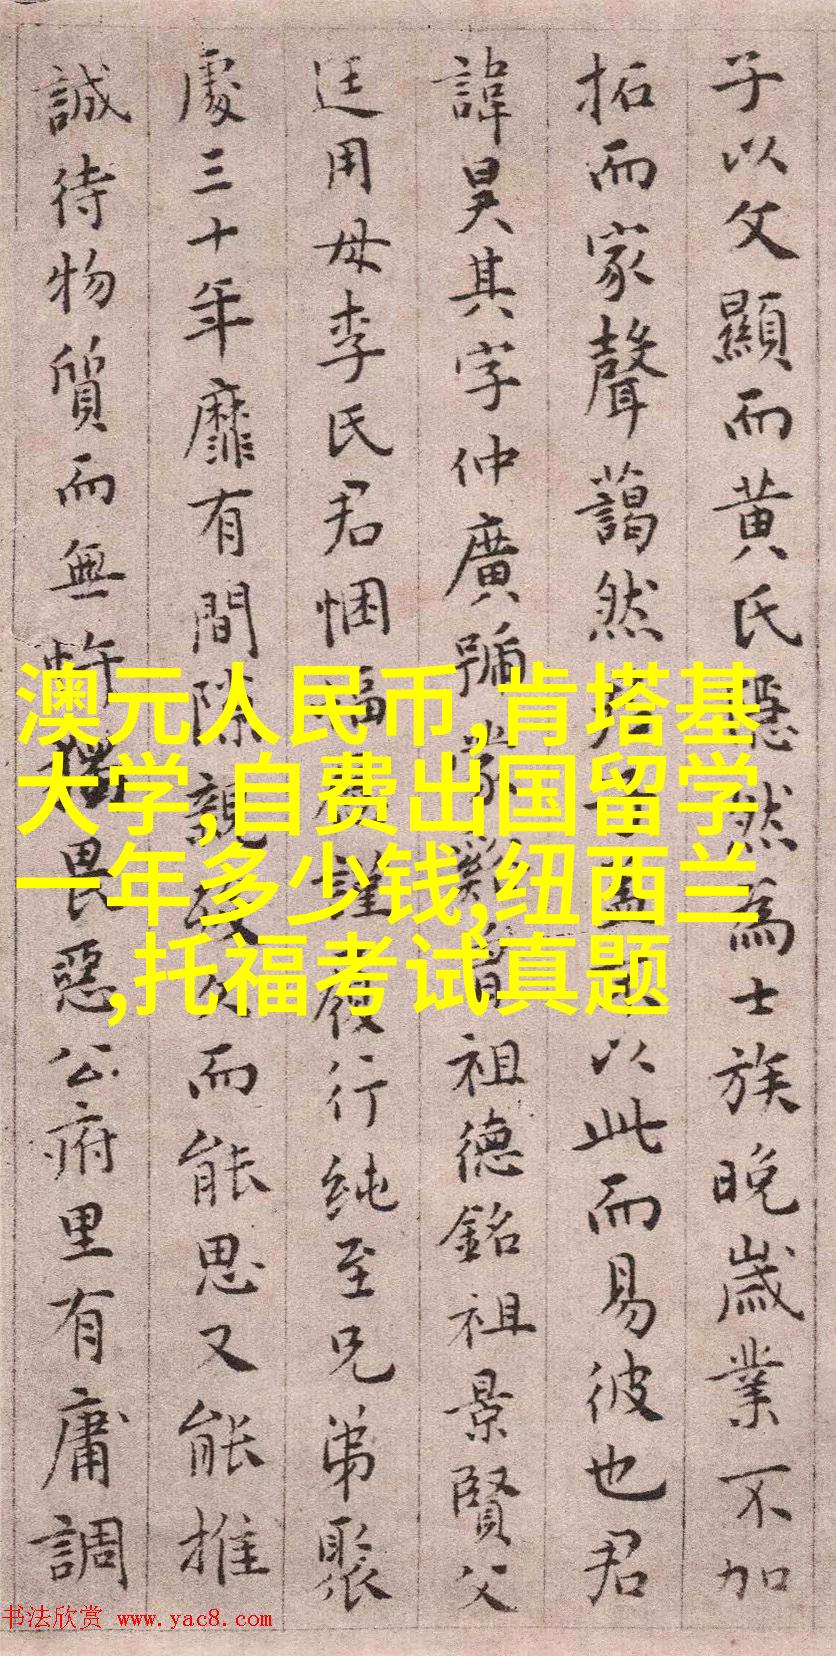 子以父顯而黄氏隱然為士族晚歲業不加
拓而家聲藹然以此而易彼也君
諱昊其字仲廣號蒙谿曾祖德銘祖景賢父
廷用母李氏君悃愊謹履行純至兄弟聚
處三十年靡有間隙親而能思又能推
誠待物質而無忤獨畏惡公府里有庸調
澳元人民币,肯塔基
大学,自费出国留学
一年多少钱,纽西兰
,托福考试真题
书法欣赏 www.yac8.com